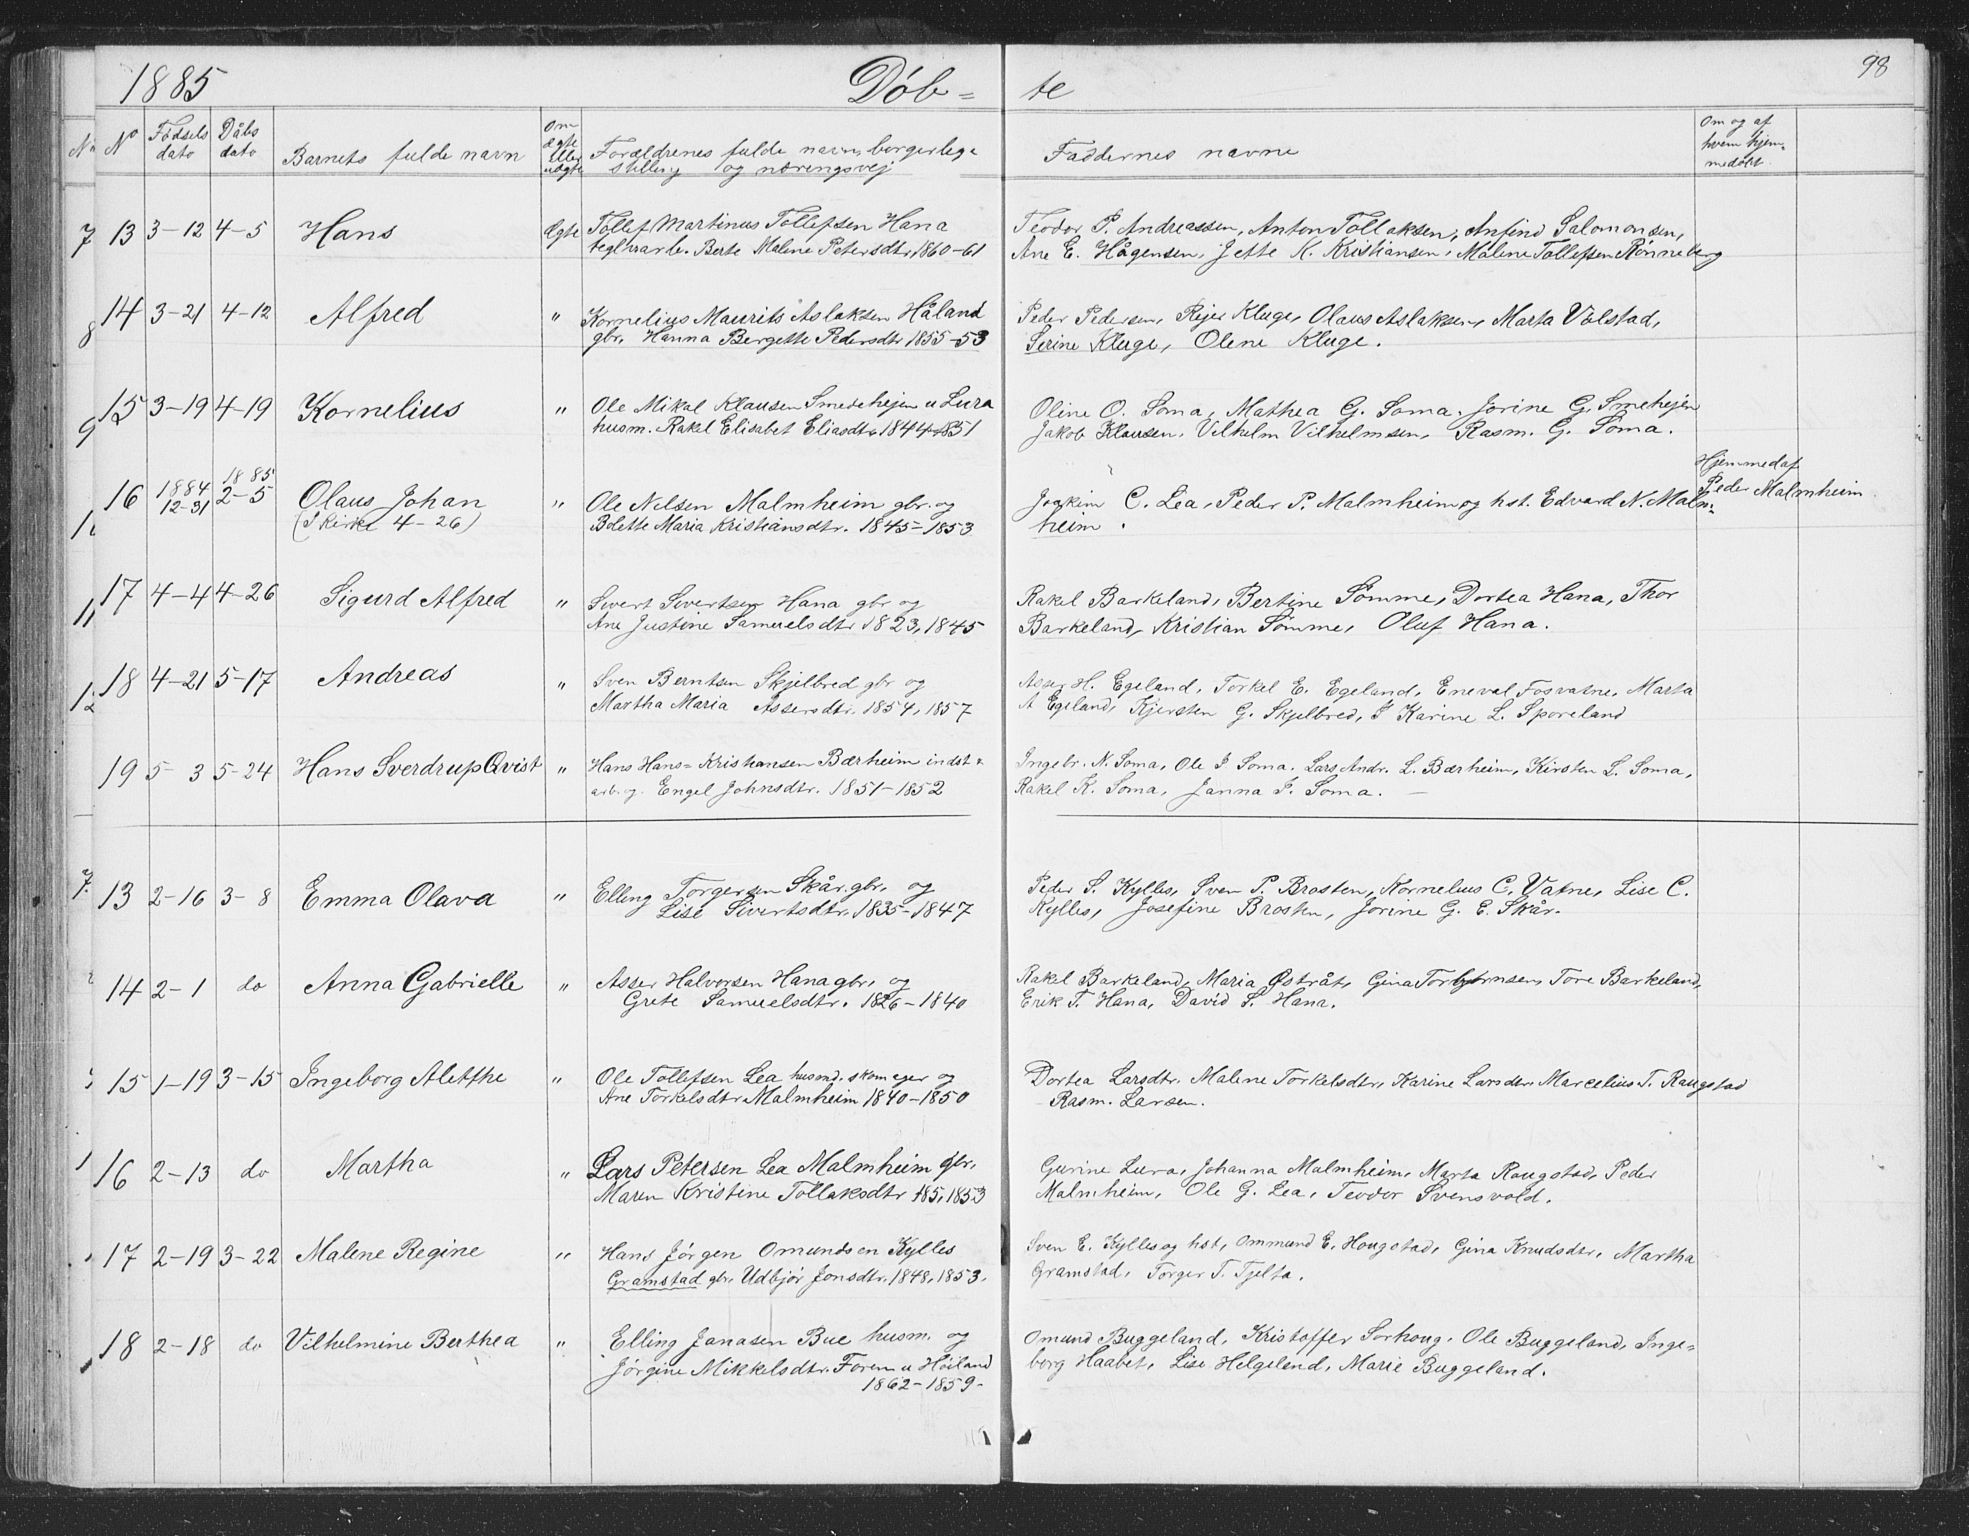 1885 Døb- te 98
No Fødsels dato Dåbs dato Barnets fulde navn Om ægte eller uægte Forældrenes fulde navn, borgerlige stilling og næringsvej Faddernes navne Om og af hvem hjemmedøbt.
13 3-12 4-5 Hans ægte Tollef Martinus Tollefsen Hana
teglvarb. Berte Malene Petersdtr. 1860-61
Teodor P. Andreassen, Anton Tollaksen, Anfind Salomonsen,
Ane E. Hågensen, Jette K. Kristiansen, Malene Tollefsen Rønneberg
14 3-21 4-12 Alfred " Kornelius Maurits Aslaksen Håland
gbr. Hanna Bergette Pedersdtr 1855-53
Peder Pedersen, Rejer Kluge, Olaus Aslaksen, Marta Volstad,
Serine Kluge, Olene Kluge.
15 3-19 4-19 Kornelius " Ole Mikal Klausen Smedehejen u Lura
husm. Rakel Elisabet Eliasdtr 1844-1851
Oline O. Soma, Mathea G. Soma. Jorine G. Smehejen
Jakob Klausen. Vilhelm Vilhelmsen, Rasm. G. Soma.
16 1884 12-31 1885 2-5 Olaus Johan
(I kirke 4-26)
" Ole Nilsen Malmheim gbr. og
Bolette Maria Kristiansdtr. 1845-1853
Joakim C. Lea, Peder P. Malmheim og hst. Edvard N. Malm-
heim.
Hjemmed af
Peder Malmheim
17 4-4 4-26 Sigurd Alfred " Sivert Sivertsen Hana gbr og
Ane Justine Samuelsdtr 1823, 1845
Rakel Barkeland, Bertine Sømme, Dortea Hana, Thor
Barkeland, Kristian Sømme, Oluf Hana.
18 4-21 5-17 Andreas " Sven Berntsen Skjelbred gbr og
Martha Maria Assersdtr. 1854, 1857
Asser H. Egeland, Torkel E. Egeland, Eneval Fosvatne, Marta
A Egeland, Kjersten G. Skjelbred, I Karine L. Sporeland
19 5-3 5-24 Hans Sverdrup Qvist " Hans Hans-Kristiansen Bærheim indst
arb. og. Engel Johnsdtr. 1851-1852
Ingebr. N. Soma, Ole I Soma. Lars Andr. L. Bærheim, Kirsten L. Soma,
Rakel K. Soma, Janna I. Soma. —
13 2-16 3-8 Emma Olava " Elling Torgersen Skår. gbr. og
Lise Sivertsdtr. 1835-1847
Peder S. Kylles, Sven P. Brosten, Kornelius C. Vatne, Lise C.
Kylles, Josefine Brosten, Jorine G. E. Skår.
14 2-1 do Anna Gabrielle " Asser Halvorsen Hana gbr. og
Grete Samuelsdtr. 1826-1840
Rakel Barkeland, Maria Østråt, Gina Torbjørnsen, Tore Barkeland,
Erik T. Hana, David S. Hana.
15 1-19 3-15 Ingeborg Alethe " Ole Tollefsen Lea husmd. skomager og
Ane Torkelsdtr Malmheim 1840-1850
Dortea Larsdtr. Malene Torkelsdtr, Karine Larsdtr. Marcelius T. Raugstad
Rasm. Larsen.
16 2-13 do Martha " Lars Petersen Lea Malmheim gbr.
Maren Kristine Tollaksdtr 185, 1853
Gurine Lura, Johanna Malmheim, Marta Raugstad, Peder
Malmheim, Ole G. Lea, Teodor Svensvold.
17 2-19 3-22 Malene Regine " Hans Jørgen Omundsen Kylles
Gramstad gbr. Udbjør Jonsdtr. 1848, 1853.
Sven E. Kylles og hst, Ommund E. Hougstad, Gina Knudsdtr, Martha
Gramstad, Torger T. Tjelta.
18 2-18 do Vilhelmine Berthea " Elling Janasen Bue husm. og
Jørgine Mikkelsdtr. Foren u Høiland
1862-1859-
Omund Buggeland, Kristoffer Sorhoug. Ole Buggeland, Inge-
borg Haabet, Lise Helgeland, Marie Buggeland.